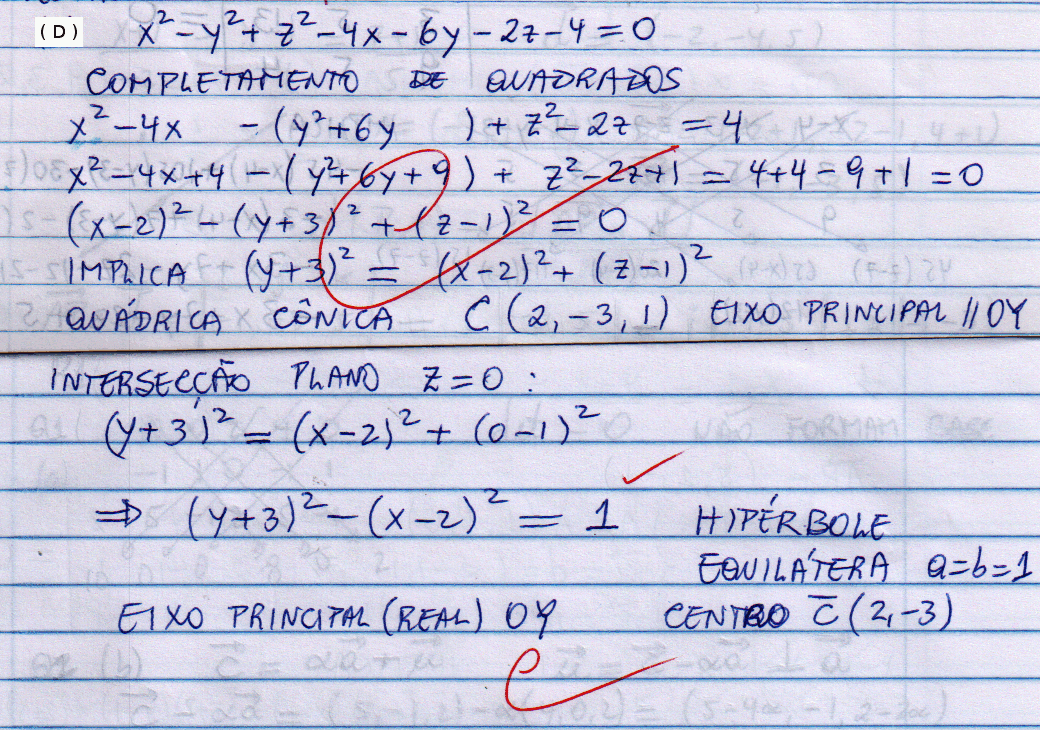 (D) x² - y² + z² - 4x - 6y - 2z - 4 = 0
COMPLETAMENTO DE QUADRADOS
x² - 4x - (y² + 6y ) + z² - 2z = 4
x² - 4x + 4 - (y² + 6y + 9) + z² - 2z + 1 = 4 + 4 - 9 + 1 = 0
(x-2)² - (y+3)² + (z-1)² = 0
IMPLICA (y+3)² = (x-2)² + (z-1)²
QUÁDRICA CÔNICA C(2,-3,1) EIXO PRINCIPAL // OY
INTERSECÇÃO PLANO Z=0 :
(y+3)² = (x-2)² + (0-1)²
⇒ (y+3)² - (x-2)² = 1 HIPÉRBOLE
EQUILÁTERA a=b=1
EIXO PRINCIPAL (REAL) OY CENTRO C̄(2,-3)